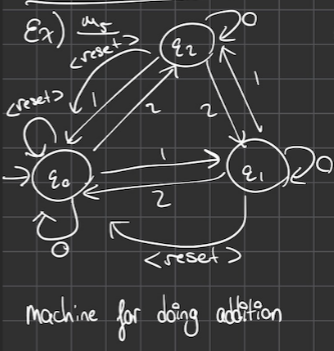 Ex)
<reset>
0
q2
<reset>
1
2
2
1
q0
1
2
q1
0
0
<reset>
machine for doing addition